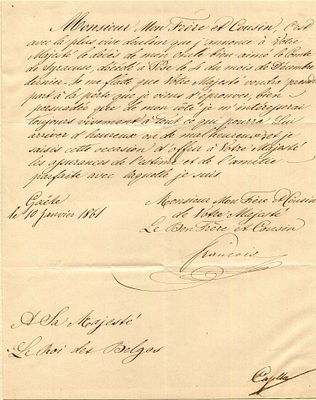 Monsieur Mon Frère et Cousin, C'est
avec la plus vive douleur que j'annonce à Votre
Majesté le décès de mon oncle bien aimé le Comte
de Syracuse, décédé à Pise le 4 du mois de Décembre
dernier. Je ne doute que Votre Majesté voudra prendre
part à la perte que je viens d'éprouver, bien
persuadée que de mon côté je m'intéresserai
toujours vivement à tout ce qui pourra Lui
arriver d'heureux ou de malheureux et je
saisis cette occasion d'offrir à Votre Majesté
les assurances de l'estime et de l'amitié
parfaite avec laquelle je suis
Gaëte
le 10 Janvier 1861
Monsieur Mon Frère et Cousin
de Votre Majesté
Le Bon Frère et Cousin
François
A Sa Majesté
Le Roi des Belges